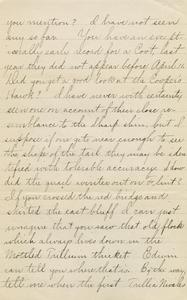 you mention? I have not seen
any so far. You have an excep-
tionally early record for a Coot. Last
year they did not appear before April 12.
Did you get a good look at the Cooper's
Hawk? I have never with certainty
seen one on account of their close re-
semblance to the sharp shin, but I
suppose if one gets near enough to see
the shape of the tail they may be iden-
tified with tolerable accuracy. How
did the quail
If you crossed the red bridge and
skirted the east bluff I can just
imagine that you saw that old flock
which always lives down in the
Mottled Trillium thicket. Edwin
can tell you where that is. By the way,
tell me when the first Trillium Nivale